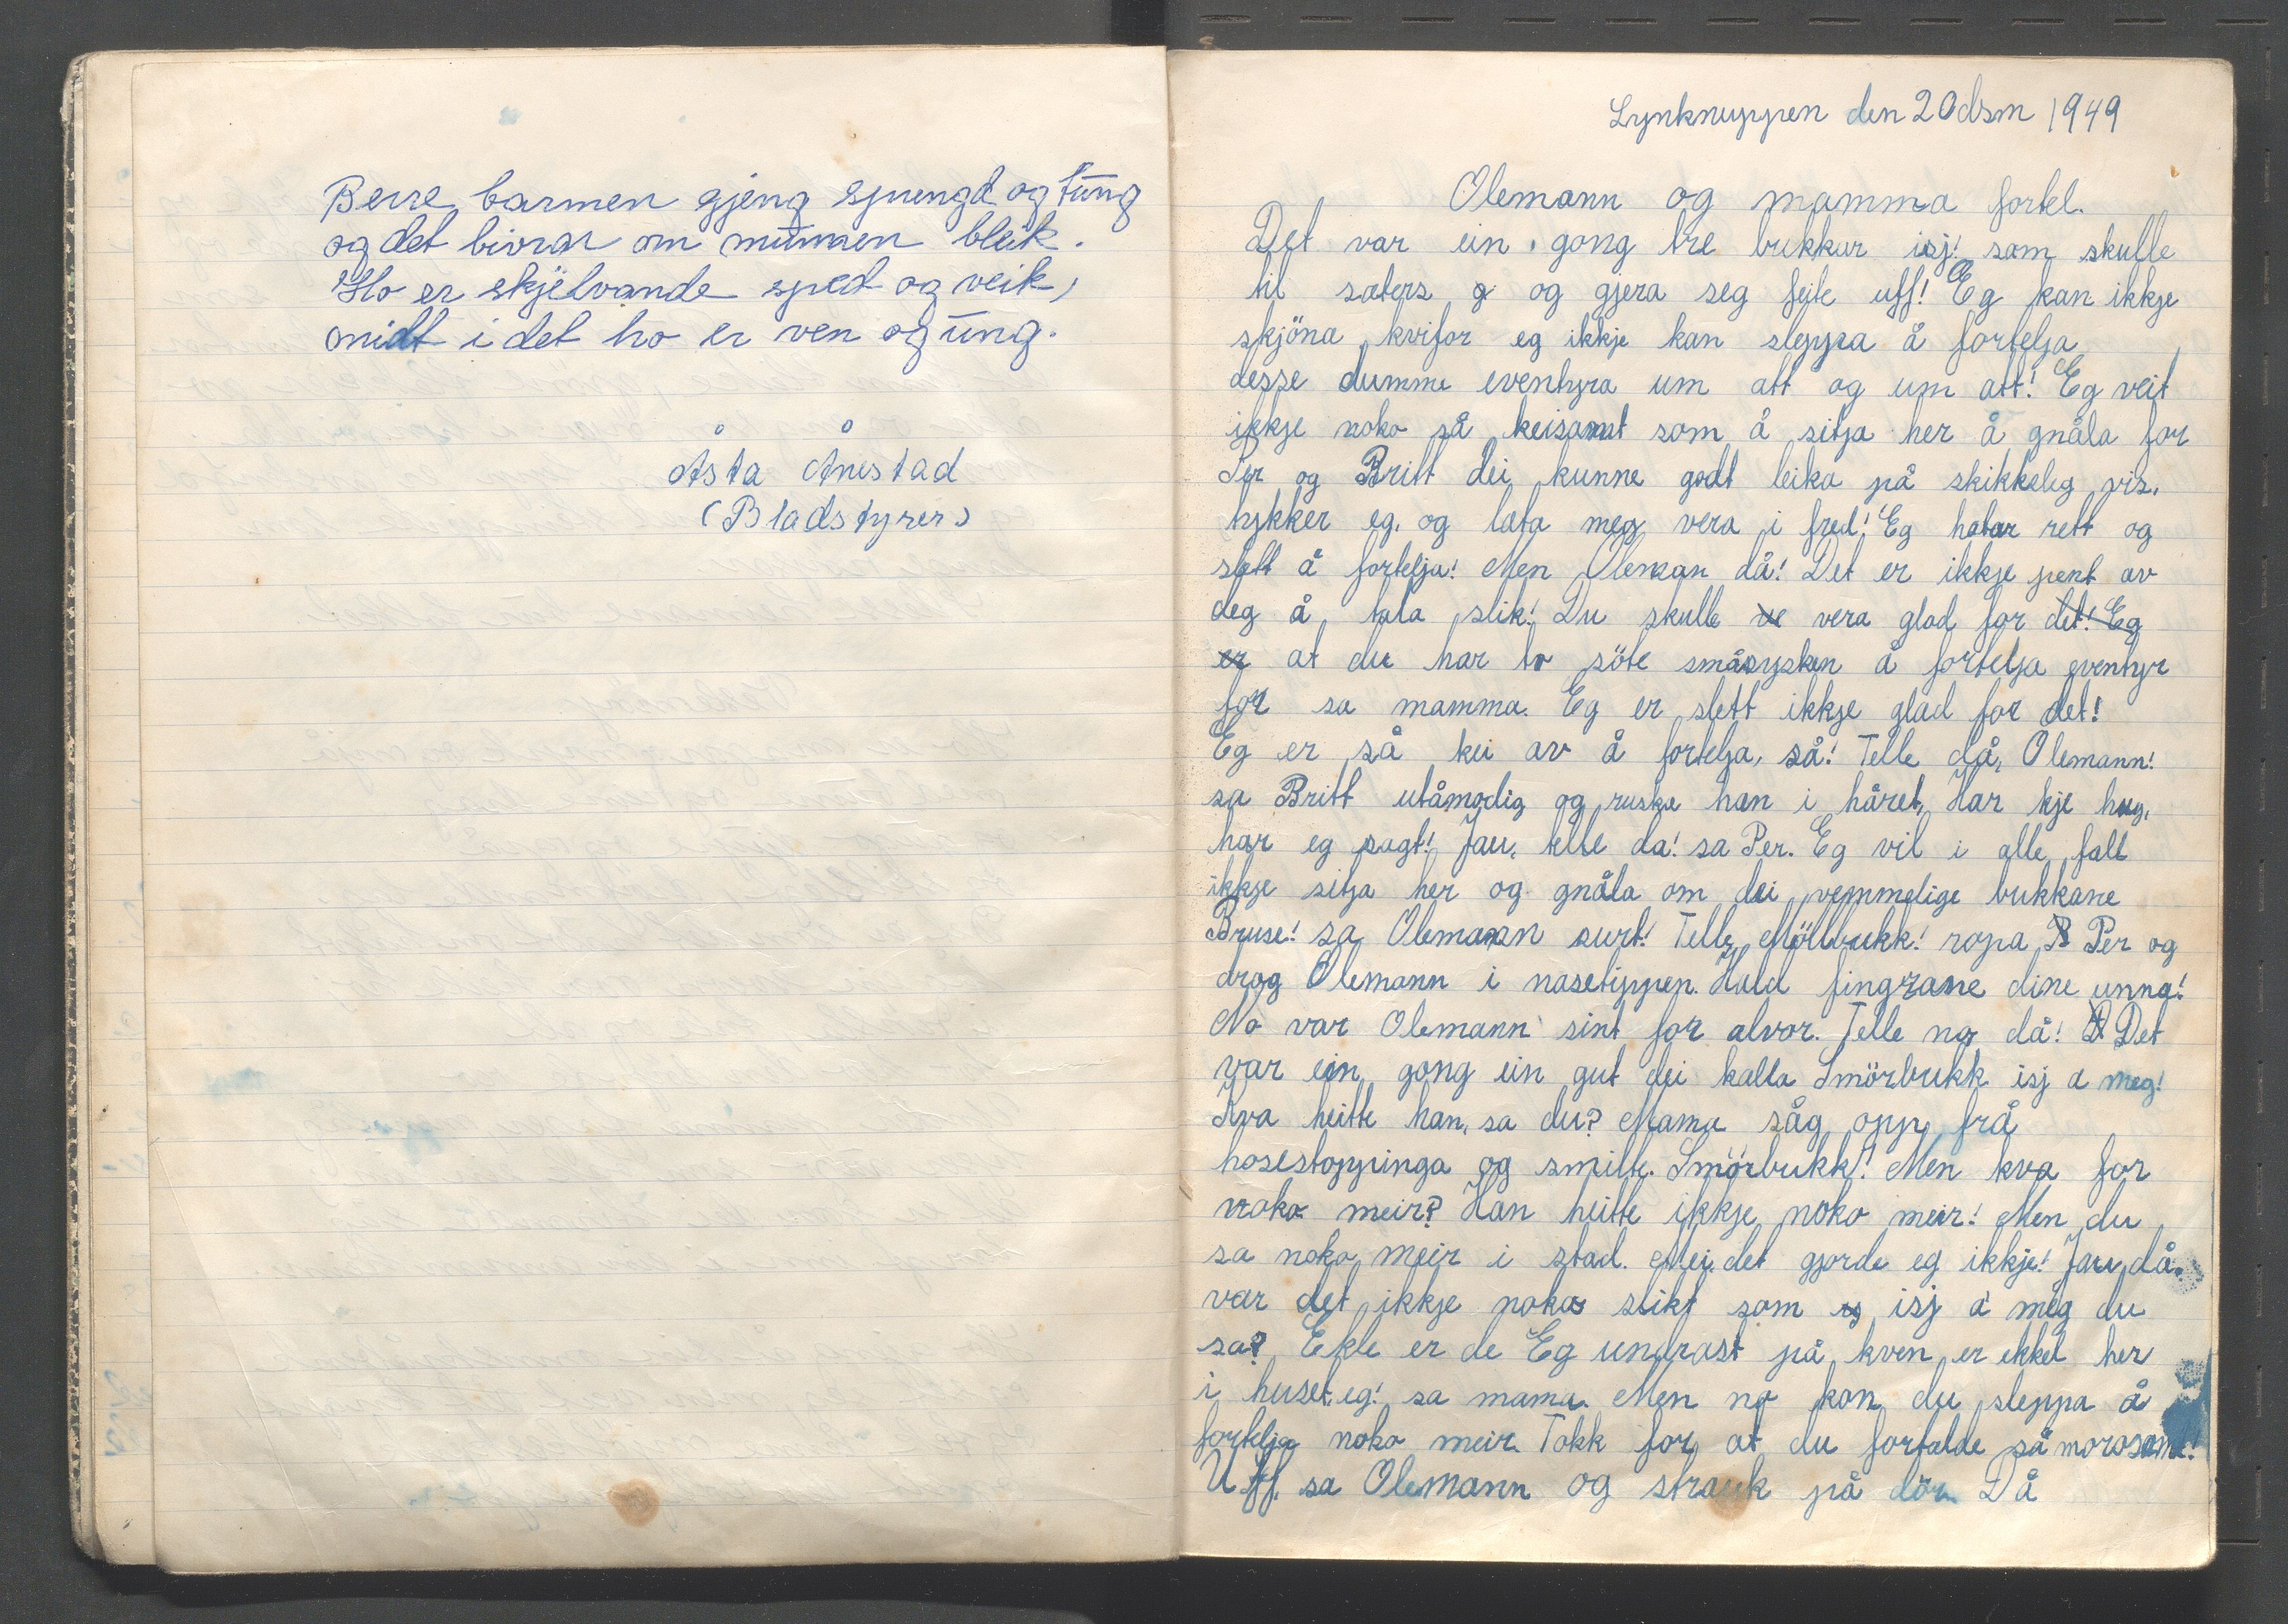 Berre barmen gjeng sprengd og tung
og det bivrar om munnen bleik.
Ho er skjelvande sped og veik,
midt i det ho er ven og ung.
Åsta Årrestad
(Bladstyrer)
Lynknuppen den 20 dsm 1949
Olemann og mamma fortel.
Det var ein gong tre bukkar isj! som skulle
til sæters og og gjera seg feite uff! Eg kan ikkje
skjöna kvifor eg ikkje kan sleppa å fortelja
desse dumme eventyra um att og um att! Eg veit
ikkje noko så keisamt som å sitja her å gnåla for
Per og Britt dei kunne godt leika på skikkeleg vis,
tykker eg, og lata meg vera i fred! Eg hatar rett og
slett å fortelja! Men Oleman då! Det er ikkje pent av
deg å tala slik! Du skulle ve vera glad for det! Eg
er at du har to söte småsysken å fortelja eventyr
for sa mamma. Eg er slett ikkje glad for det!
Eg er så kei av å fortelja, så! Telle då, Olemann!
sa Britt utåmodig og ruska han i håret, Har kje hug,
har eg sagt! Jau, telle da! sa Per. Eg vil i alle fall
ikkje sitja her og gnåla om dei vemmelige bukkane
Bruse! sa Olemann surt! Telle Möllbukk! ropa B Per og
drog Olemann i nasetippen. Hald fingrane dine unna!
No var Olemann sint for alvor. Telle no då! D Det
var ein gong ein gut dei kalla Smörbukk isj a meg!
Kva heitte han, sa du? Mama såg opp frå
hosestoppinga og smilte. Smörbukk! Men kva for
noko meir? Han heitte ikkje noko meir! Men du
sa noko meir i stad. Nei det gjorde eg ikkje! Jau då.
var det ikkje noko slikt som isj a meg du
sa? Ekle er de Eg undrast på kven er ekkel her
i huset, eg! sa mama. Men no kan du sleppa å
fortelja noko meir. Takk for at du fortalde så morosamt!
Uff. sa Olemann og strauk på dör. Då